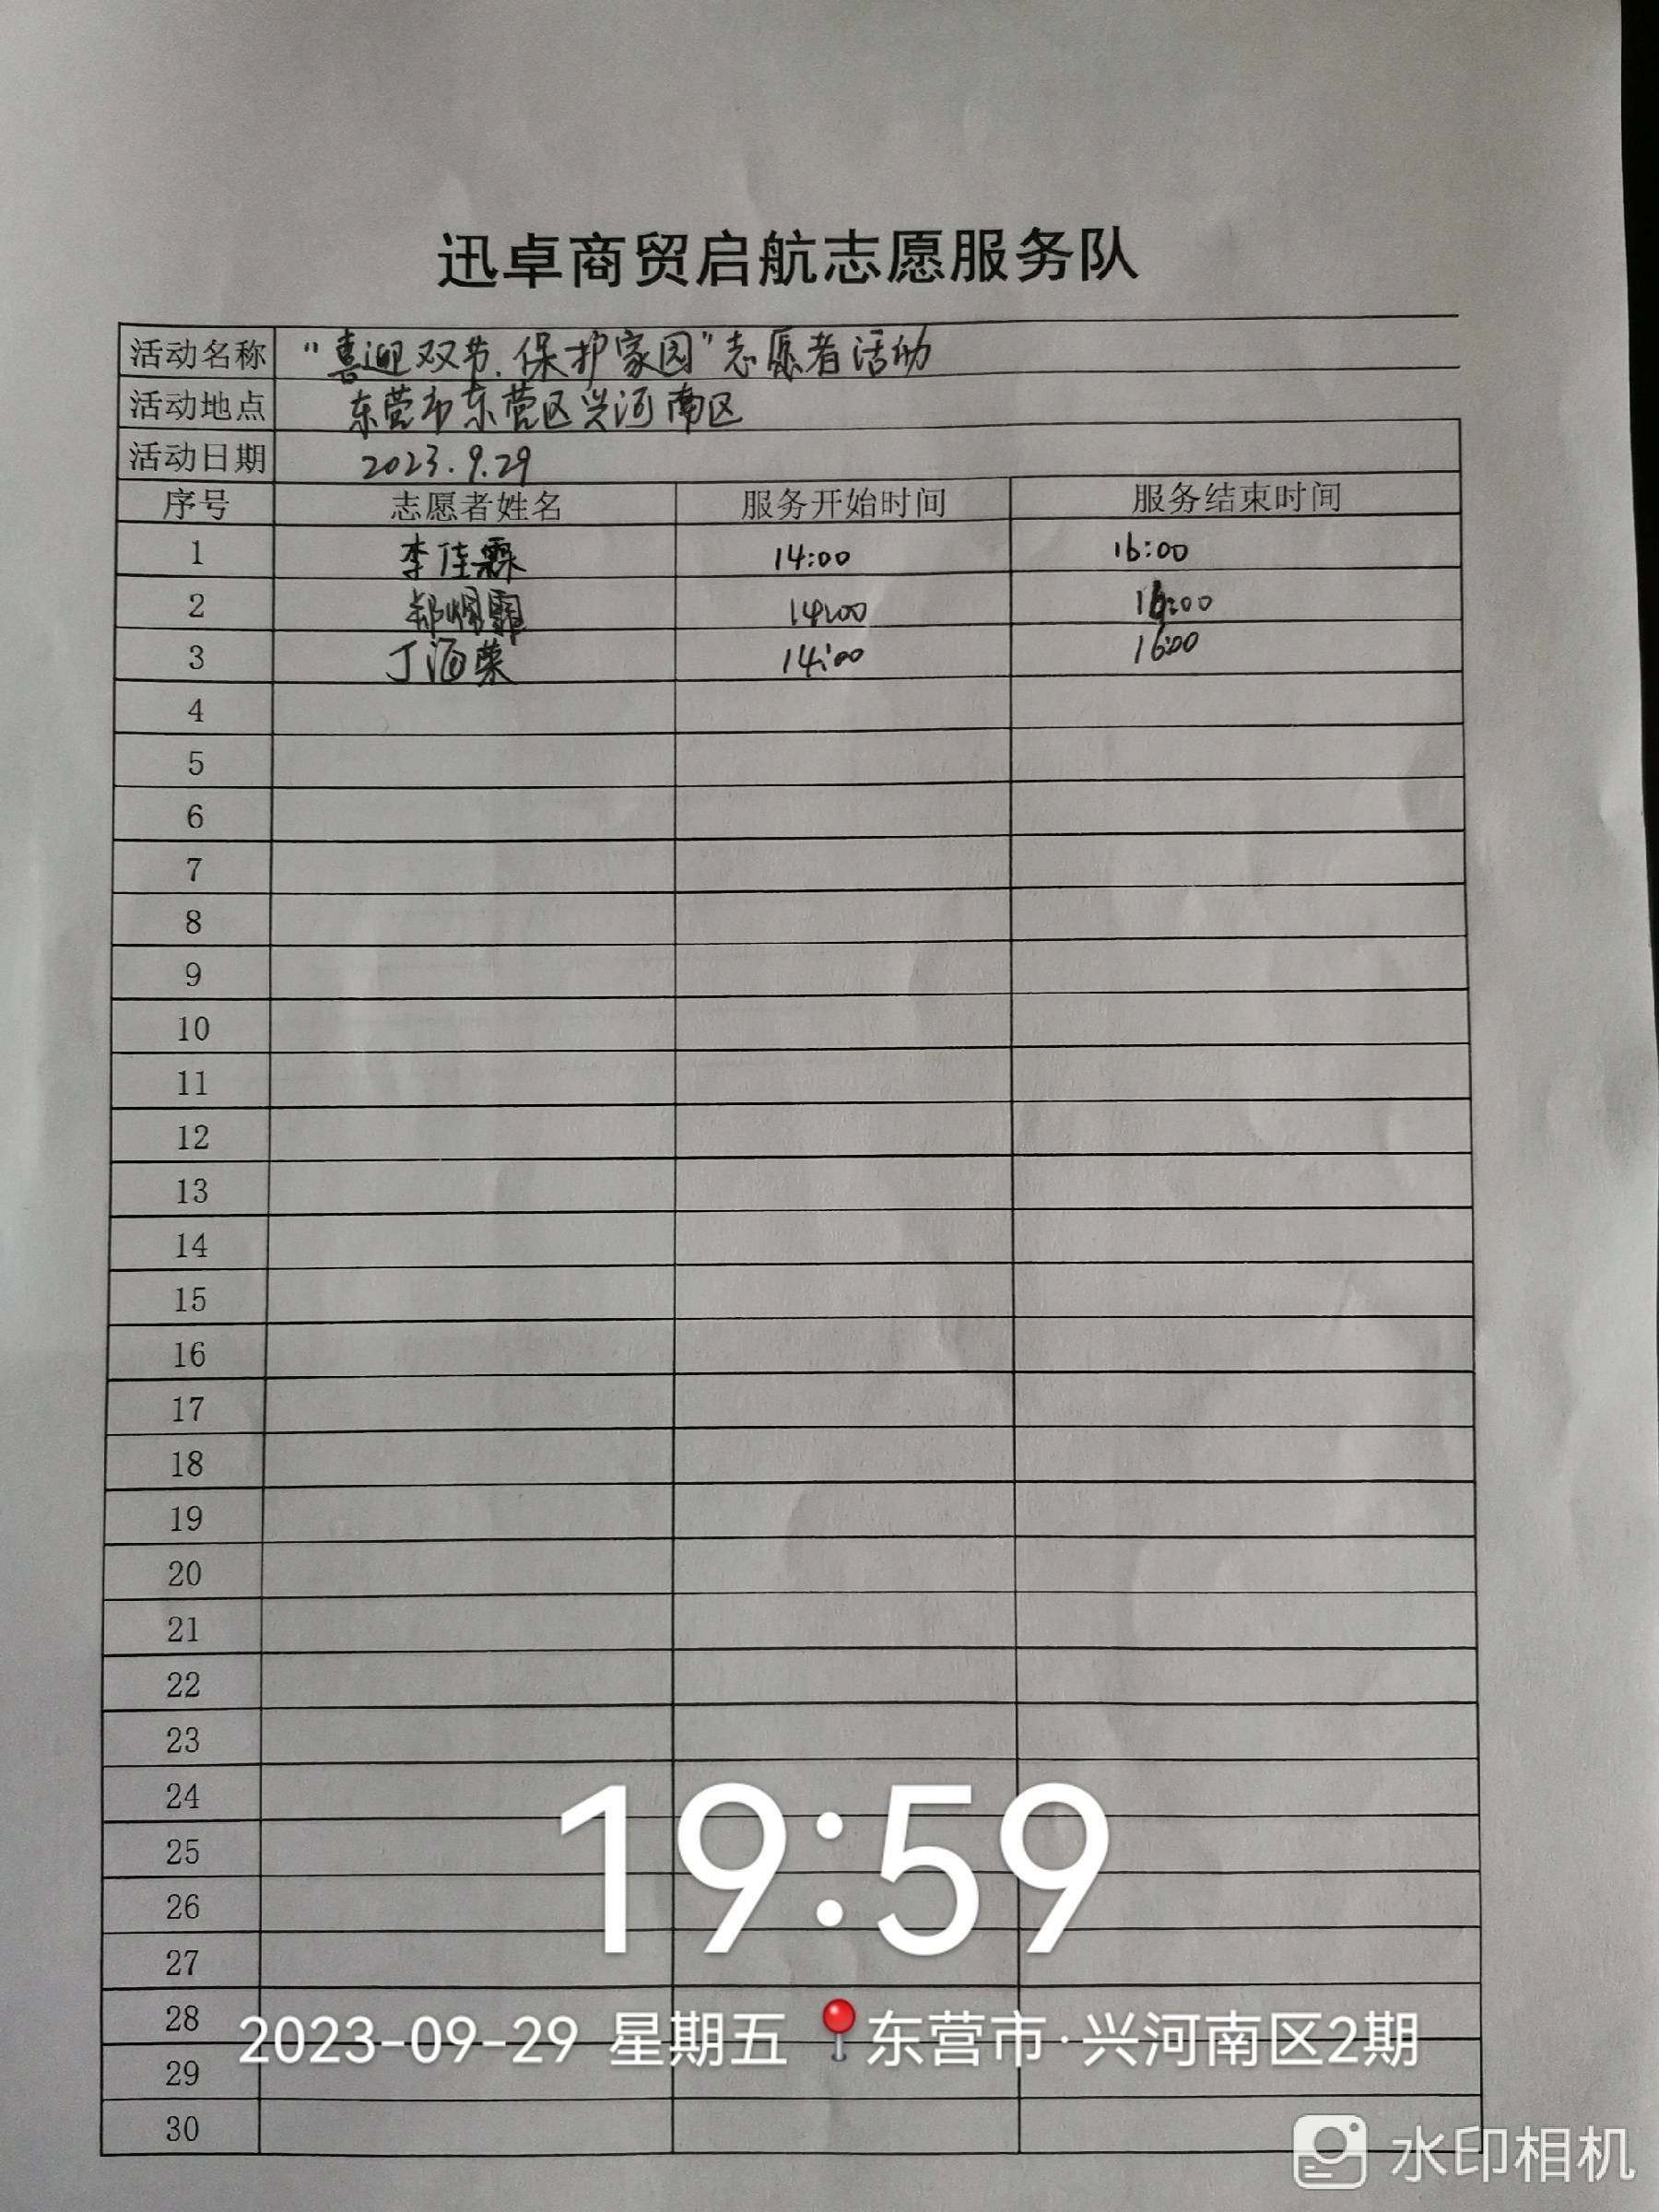 迅卓商贸启航志愿服务队
活动名称 “喜迎双节、保护家园”志愿者活动
活动地点 东营市东营区兴河南区
活动日期 2023.9.29
序号 志愿者姓名 服务开始时间 服务结束时间
1 李佳霖 14:00 16:00
2 郑 霏 14:00 16:00
3 丁海荣 14:00 16:00
4
5
6
7
8
9
10
11
12
13
14
15
16
17
18
19
20
21
22
23
24
25
26
27
28
29
30
19:59
2023-09-29 星期五 东营市·兴河南区2期
水印相机